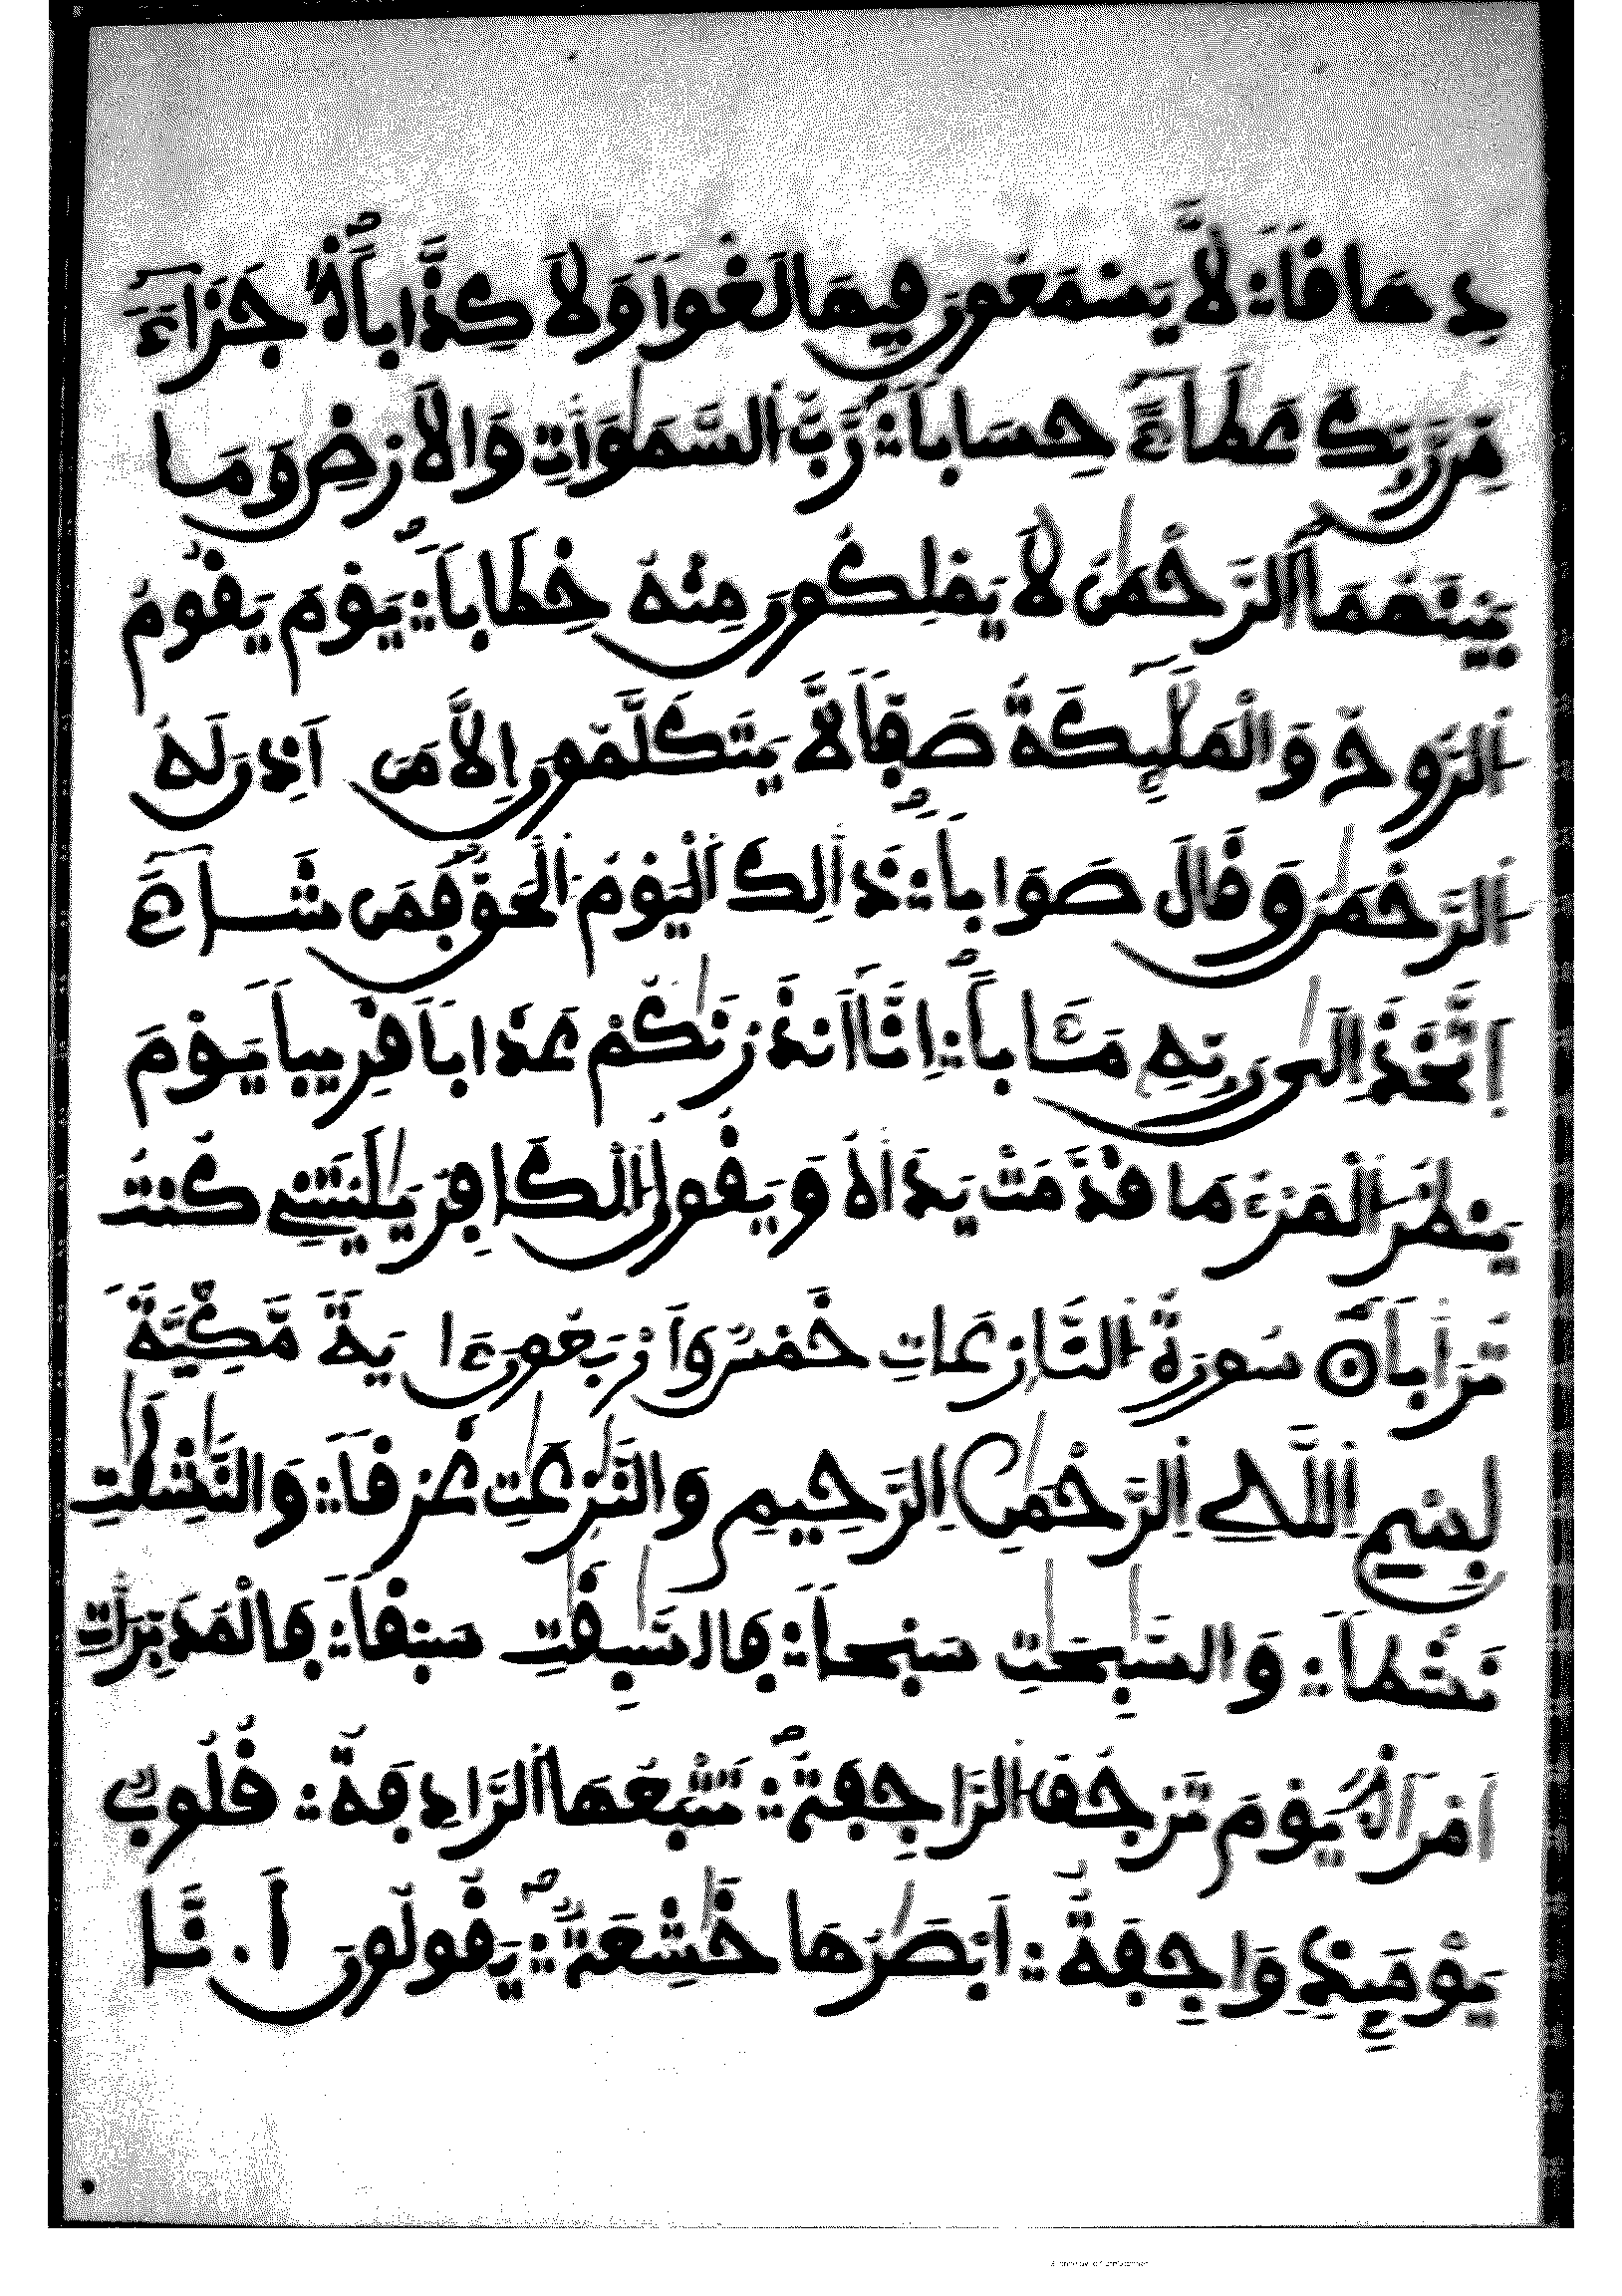 دِهَافاً لَّا يَسْمَعُونَ فِيهَا لَغْواً وَلَا كِذَّاباً جَزَآءً
مِّن رَّبِّكَ عَطَآءً حِسَاباً رَّبُّ السَّمَٰوَاتِ وَالَارْضِ وَمَا
بَيْنَهُمَا الرَّحْمَٰنُ لَا يَمْلِكُونَ مِنْهُ خِطَاباً يَوْمَ يَقُومُ
الرُّوحُ وَالْمَلَٰٓئِكَةُ صَفّاً لَّا يَتَكَلَّمُونَ إِلَّا مَنَ اَذِنَ لَهُ
الرَّحْمَٰنُ وَقَالَ صَوَاباً ذَالِكَ الْيَوْمُ الْحَقُّ فَمَن شَآءَ
اَتَّخَذَ إِلَىٰ رَبِّهِ مَـَٔاباً اِنَّا أَنذَرْنَٰكُمْ عَذَاباً قَرِيباً يَوْمَ
يَنظُرُ الْمَرْءُ مَا قَدَّمَتْ يَدَاهُ وَيَقُولُ الْكَافِرُ يَٰلَيْتَنِے كُنتُ
تُرَاباً سُورَةُ النَّازِعَاتِ خَمْسٌ وَاَرْبَعُونَ ءَايَةً مَّكِّيَّةً
بِسْمِ اِللَّهِ اِلرَّحْمَٰنِ اِلرَّحِيمِ وَالنَّٰزِعَٰتِ غَرْقاً وَالنَّٰشِطَٰتِ
نَشْطاً وَالسَّٰبِحَٰتِ سَبْحاً فَالسَّٰبِقَٰتِ سَبْقاً فَالْمُدَبِّرَٰتِ
أَمْراً يَوْمَ تَرْجُفُ الرَّاجِفَةُ تَتْبَعُهَا الرَّادِفَةُ قُلُوبٌ
يَوْمَئِذٍ وَاجِفَةٌ اَبْصَٰرُهَا خَٰشِعَةٌ يَقُولُونَ أَ.نَّا